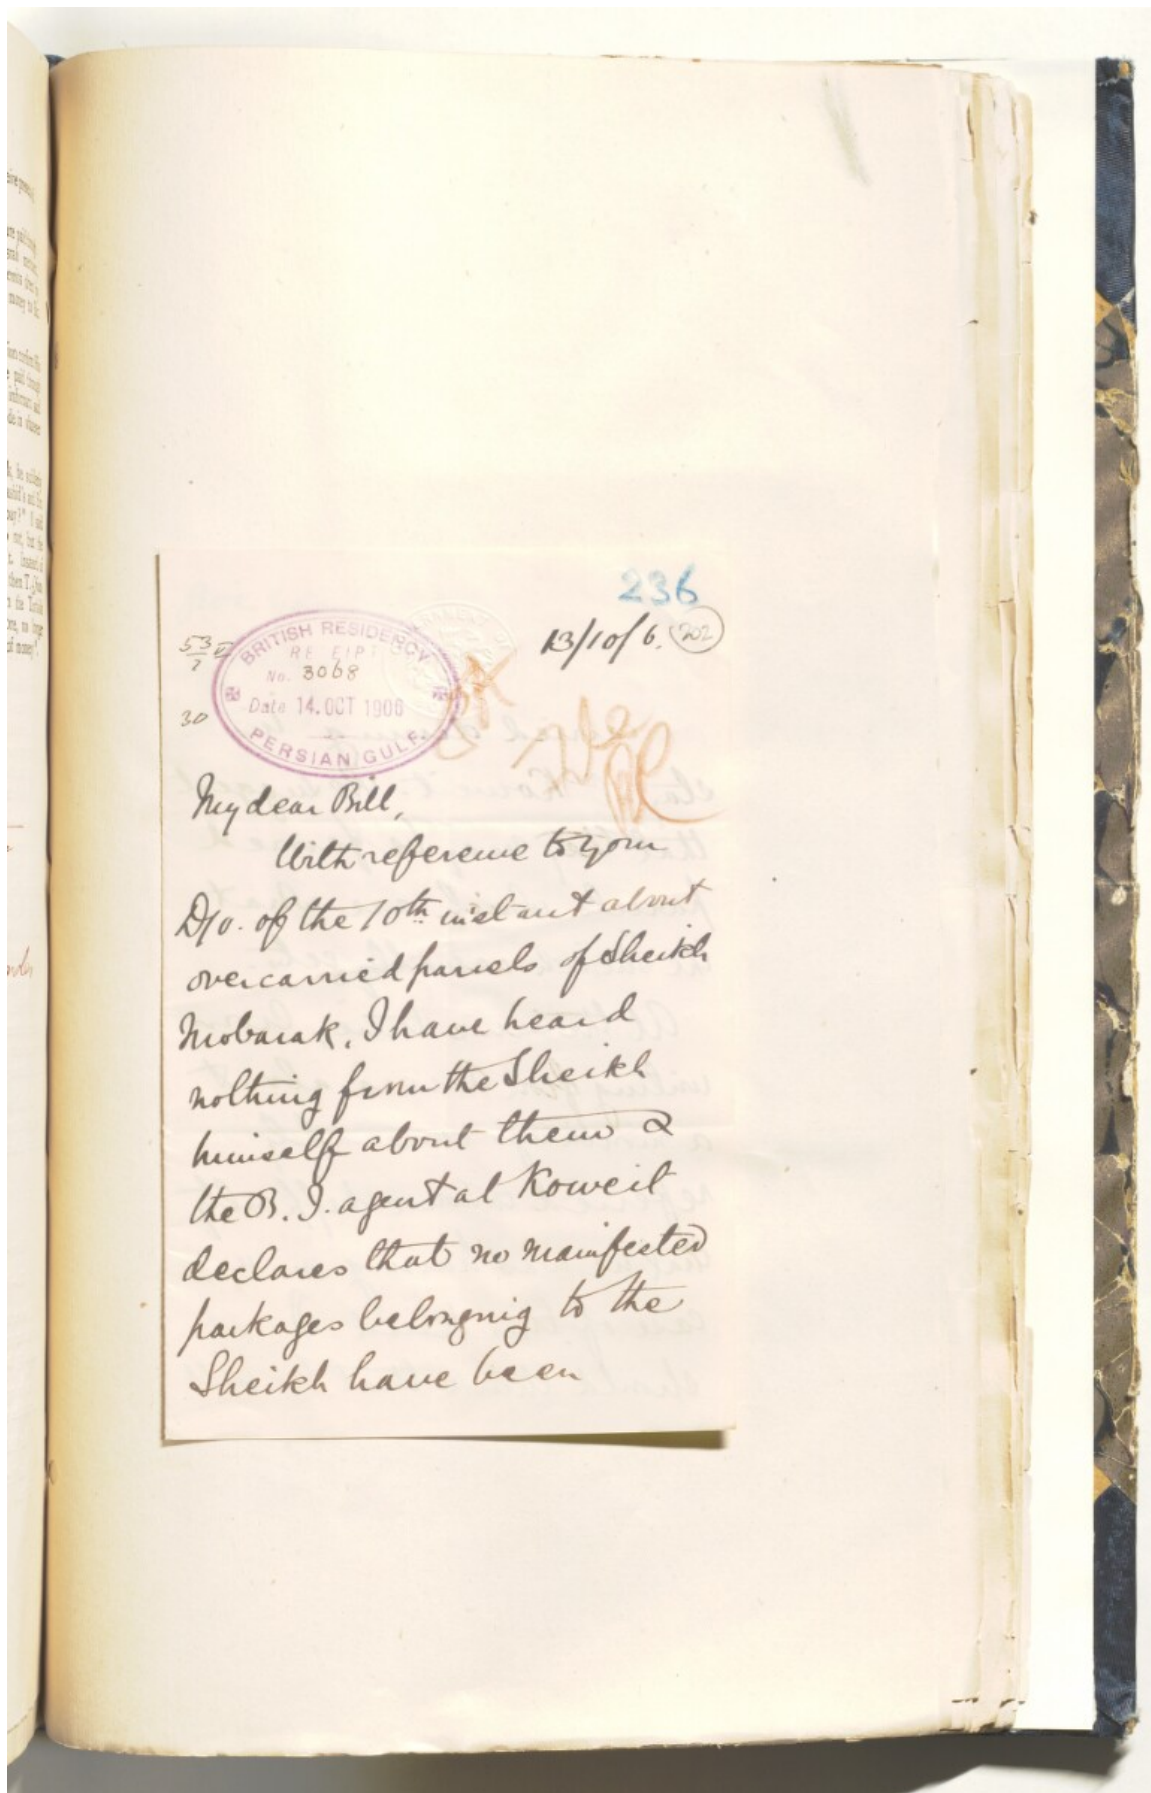 236
13/10/6. 202
53
30
BRITISH RESIDENCY
RECEIPT
No. 3068
Date 14. OCT 1906
PERSIAN GULF.
My dear Bill,
With reference to your
D/o. of the 10th instant about
overcarried parcels of Sheikh
Mobarak, I have heard
nothing from the Sheikh
himself about them &
the B. I. agent at Koweit
declares that no manifested
packages belonging to the
Sheikh have been